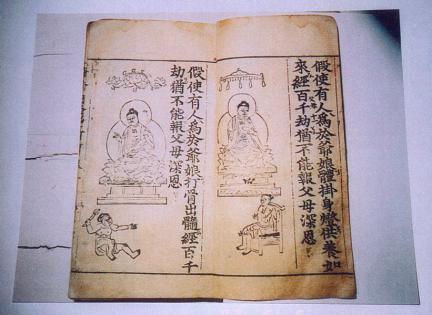 假使有人為於爺娘體掛身燈供養如
來經百千劫猶不能報父母深恩
假使有人爲於爺娘打骨出髓經百千
劫猶不能報父母深恩